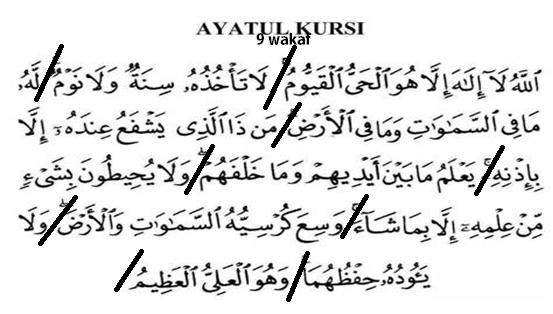 AYATUL KURSI
9 wakaf
اللَّهُ لَا إِلَٰهَ إِلَّا هُوَ الْحَيُّ الْقَيُّومُ ۚ لَا تَأْخُذُهُ سِنَةٌ وَلَا نَوْمٌ ۚ لَّهُ
مَا فِي السَّمَاوَاتِ وَمَا فِي الْأَرْضِ ۗ مَن ذَا الَّذِي يَشْفَعُ عِندَهُ إِلَّا
بِإِذْنِهِ ۚ يَعْلَمُ مَا بَيْنَ أَيْدِيهِمْ وَمَا خَلْفَهُمْ ۖ وَلَا يُحِيطُونَ بِشَيْءٍ
مِّنْ عِلْمِهِ إِلَّا بِمَا شَاءَ ۚ وَسِعَ كُرْسِيُّهُ السَّمَاوَاتِ وَالْأَرْضَ ۖ وَلَا
يَئُودُهُ حِفْظُهُمَا ۚ وَهُوَ الْعَلِيُّ الْعَظِيمُ